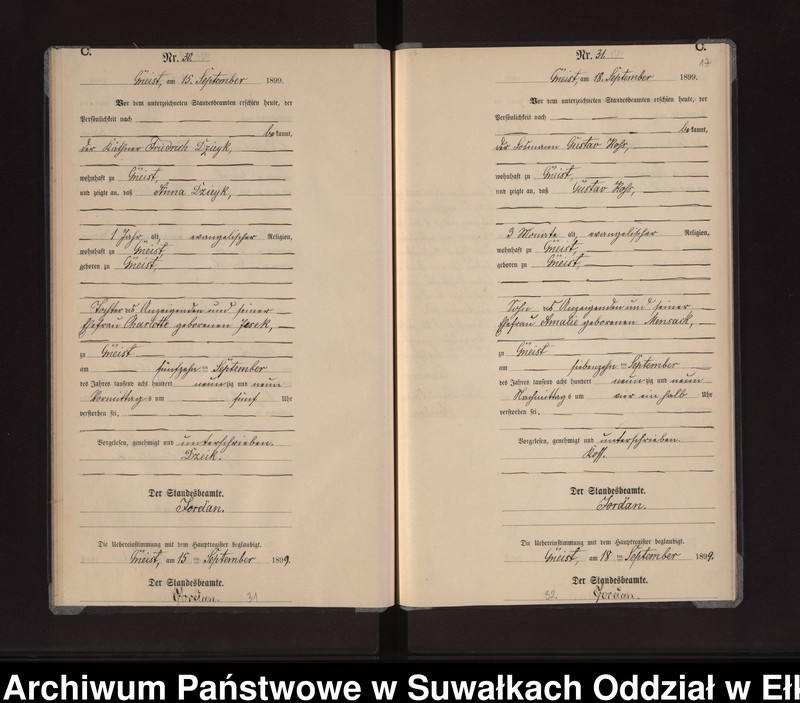 C.
Nr. 30.
Gneist, am 15. September 1899.
Vor dem unterzeichneten Standesbeamten erschien heute, der
Persönlichkeit nach
bekannt,
der Käthner Friedrich Dzieyk,
wohnhaft zu Gneist,
und zeigte an, daß Anna Dzieyk,
1 Jahr alt, evangelischer Religion,
wohnhaft zu Gneist,
geboren zu Gneist,
Tochter des Anzeigenden und seiner
Ehefrau Charlotte geborenen Jesek,
zu Gneist
am fünfzehn ten September
des Jahres tausend acht hundert neunzig und neun
Vormittags um fünf Uhr
verstorben sei.
Vorgelesen, genehmigt und unterschrieben.
Dzeik.
Der Standesbeamte.
Jordan.
Die Uebereinstimmung mit dem Hauptregister beglaubigt.
Gneist, am 15 ten September 1899.
Der Standesbeamte.
Jordan.
31
C.
17
Nr. 31.
Gneist, am 18. September 1899.
Vor dem unterzeichneten Standesbeamten erschien heute, der
Persönlichkeit nach
bekannt,
der Losmann Gustav Koss,
wohnhaft zu Gneist,
und zeigte an, daß Gustav Koss,
3 Monate alt, evangelischer Religion,
wohnhaft zu Gneist,
geboren zu Gneist,
Sohn des Anzeigenden und seiner
Ehefrau Amalie geborenen Mensack,
zu Gneist
am siebenzehn ten September
des Jahres tausend acht hundert neunzig und neun
Nachmittags um vier ein halb Uhr
verstorben sei.
Vorgelesen, genehmigt und unterschrieben.
Koss.
Der Standesbeamte.
Jordan.
Die Uebereinstimmung mit dem Hauptregister beglaubigt.
Gneist, am 18 ten September 1899.
Der Standesbeamte.
Jordan.
32.
Archiwum Państwowe w Suwałkach Oddział w Ełk